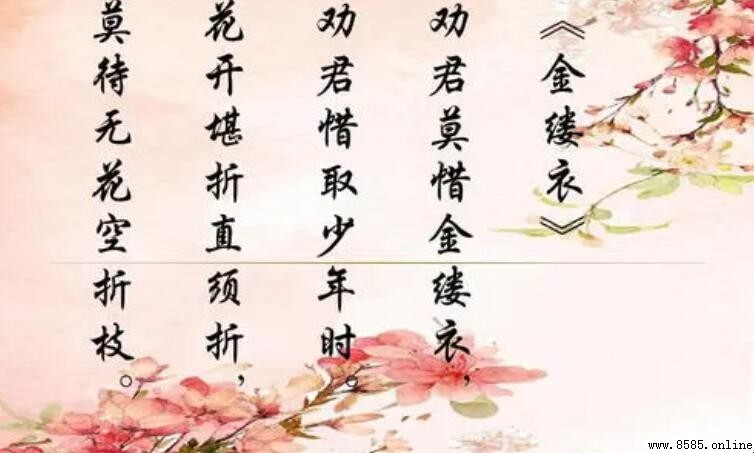 《金缕衣》
劝君莫惜金缕衣，
劝君惜取少年时。
花开堪折直须折，
莫待无花空折枝。
www.8585.online